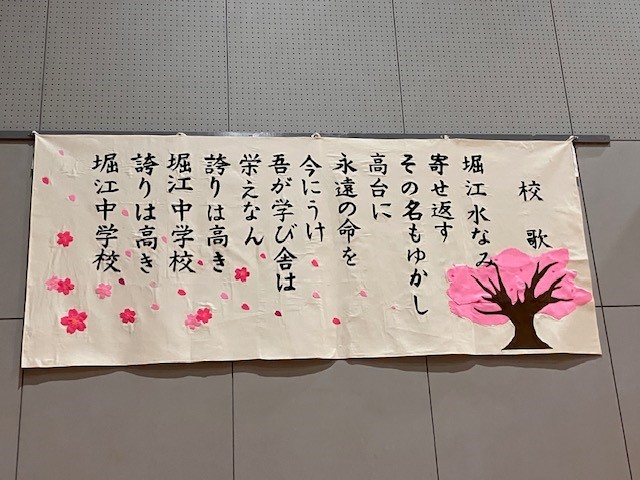 校歌
堀江水なみ
寄せ返す
その名もゆかし
高台に
永遠の命を
今にうけ
吾が学び舎は
栄えなん
誇りは高き
堀江中学校
誇りは高き
堀江中学校